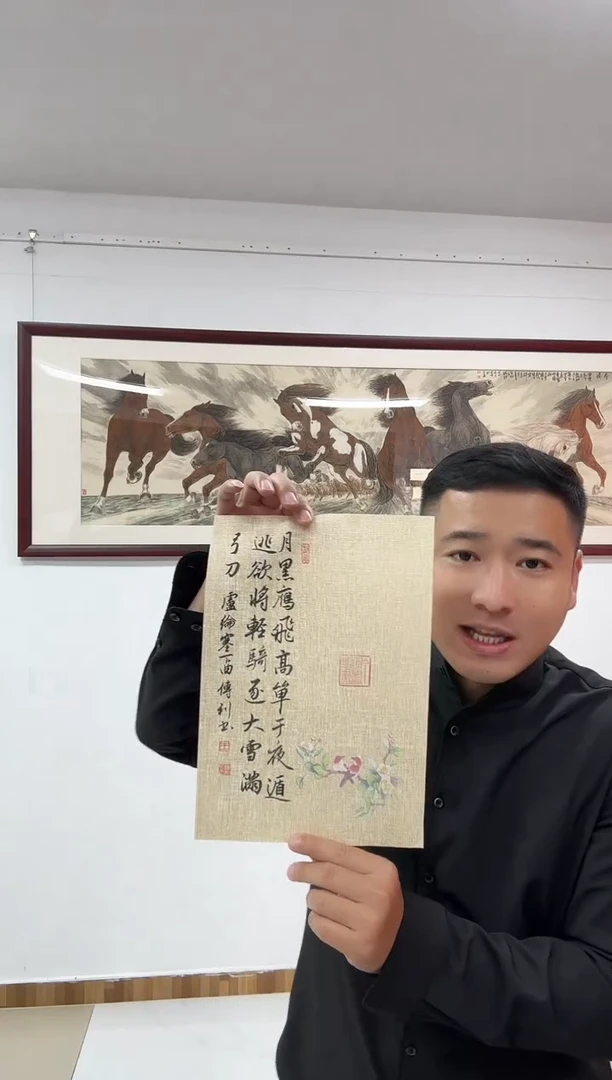 月黑鷹飛高單于夜遁
逃欲將輕騎逐大雪滿
弓刀 盧綸塞下曲 傅利书